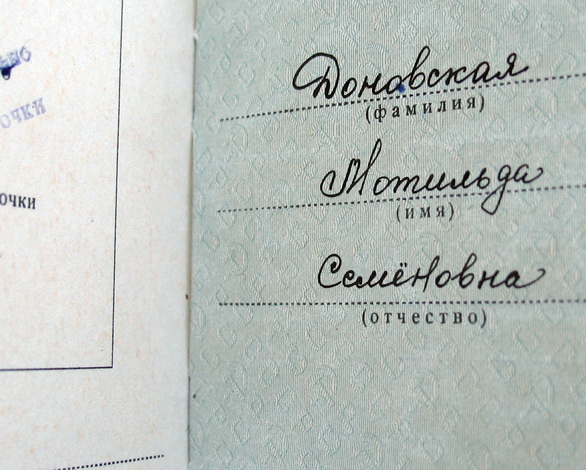 очки
очки
Доновская
(фамилия)
Мотильда
(имя)
Семёновна
(отчество)